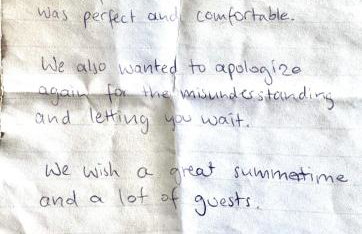 was perfect and comfortable.
We also wanted to apologize
again for the misunderstanding
and letting you wait.
We wish a great summertime
and a lot of guests.